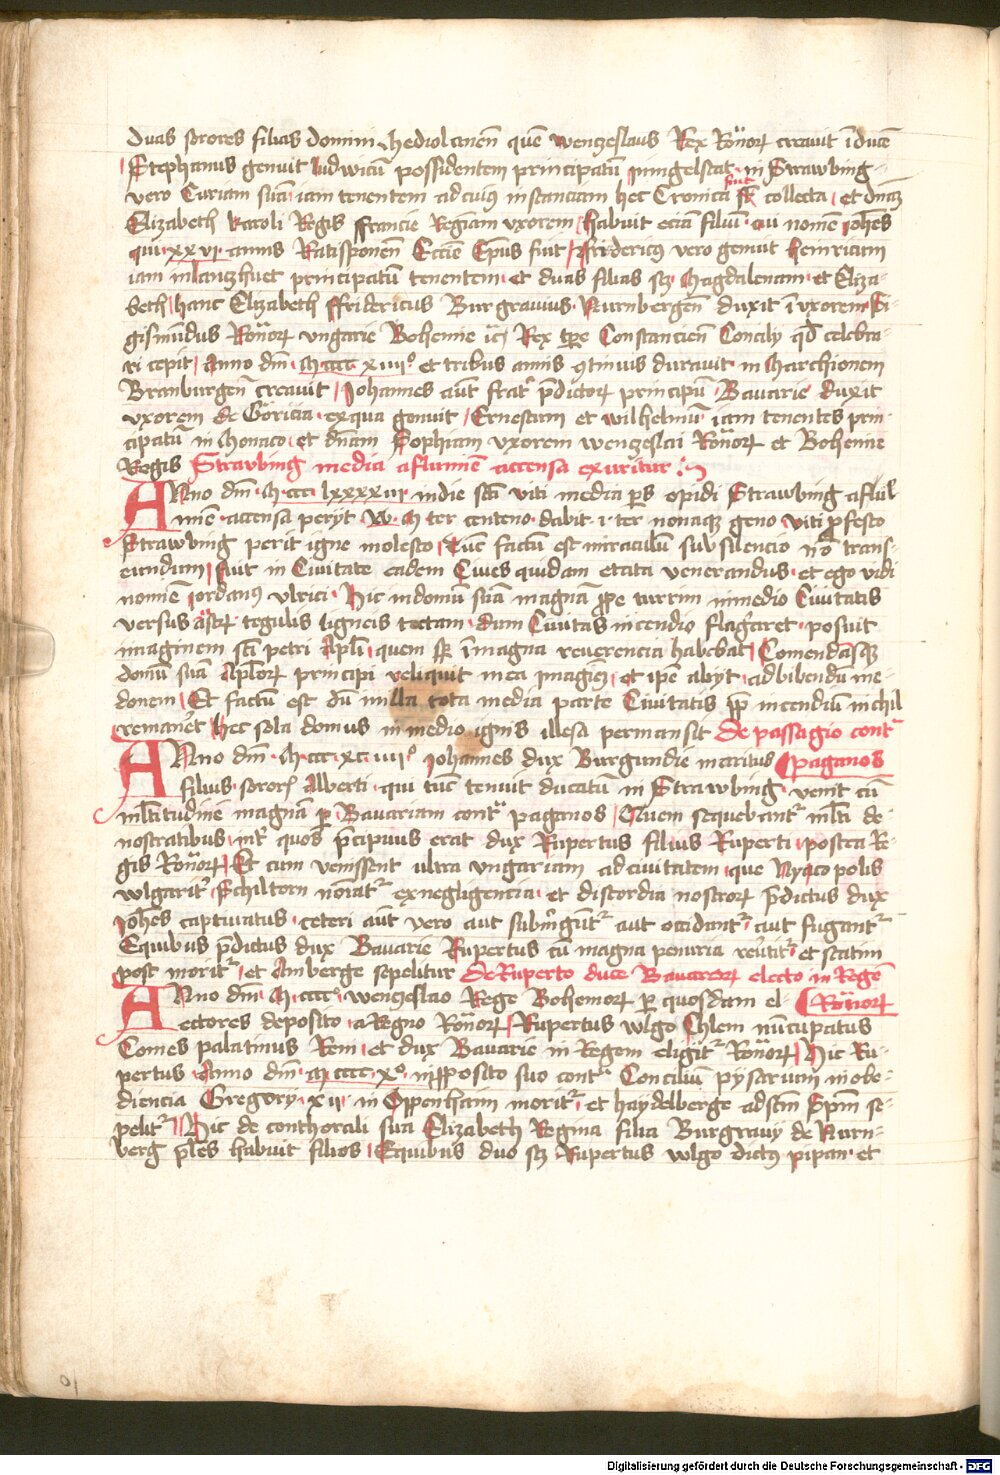 duas sorores filias domini Mediolanen̄ quē wentzeslaus Rex Ro̅nor̢ creauit ī ducē
Stephanus genuit ludwicū possidentem principatū in ingelstat in Strawbing
vero Curiam suā iam tenentem ad cuius instanciam hec Cronica fuit collecta et
Elizabeth karoli Regis ffrancie Regiam vxorem habuit eciā filiū cui nomen Joh̄es
qui xx vi annis Ratisponen̄ Ecc̄ie Ep̄us fuit ffridericus vero genuit heinricum
iam in lantzhuet principatū tenentem et duas filias scz Magdalenam et Eliza-
beth hanc Elizabeth ffridericus Burgrauius Nurnbergen̄ duxit ī vxorem Si-
gismūdus Ro̅nor̢ vngarie Bohemie Rex tp̄re Constancien̄ Concily qd̄ celebra-
ri cepit Anno dn̄i M cccc x iiiiº et tribus annis 9tinuis durauit in Marchionem
Branburgen̄ creauit Johannes aut̄ frater p̄dictor̢ principū Bauarie duxit
vxorem de Goricia ex qua genuit Ernestum et wilhelmū iam tenentes prin-
cipatū in Monaco et dn̄am Sophiam vxorem wentzeslai Ro̅nor̢ et Bohemie
Regis Strawbing media a flumīe accensa exuritur
Anno dn̄i M ccc lxxxxvii in die scī viti media ps opidi Strawbing a flu-
mīe accensa peryt M ter centeno dabit ter nonaqz geno viti p festo
Strawbing perit igne molesto Tūc factū est miraculū sub silencio nō trans-
eundum fuit in Ciuitate eadem Ciues quidam etate venerandus et ego vidi
nomīe Jordanus vlrici Hic in domū suā magnā ꝓpe turrim in medio Ciuitatis
versus tegulis ligneis tectam dum Ciuitas incendio flagraret posuit
imaginem scī petri Apl̄i quem in magna reuerencia habebat Comendasqz
domū suā Apl̄or̢ principi reliquit in ea ymagīez et ipe abyt ad bibendū me-
donem Et factū est dū in illa tota media parte Ciuitatis ꝓpter incendiū nichil
remanet hec sola domus in medio ignis illesa permansit De passagio contr
Anno dn̄i M ccc xc iiiiº Johannes dux Burgundie maritus paganos
filius sororis Alberti qui tūc tenuit ducatū in Strawbing venit cū
ml̄titudine magnā per Bauariam contra paganos Quem sequebantr ml̄ti de
nostratibus int̄ quos p̄cipuus erat dux Rupertus filius Ruperti postea Re-
gis Ro̅nor̢ Et cum venissent vltra vngariam ad ciuitatem que Nyaco polis
wlgarit̄ Schiltorn noīatr ex negligencia et discordia nostror̢ p̄dictus dux
Joh̄es captiuatus ceteri aut̄ vero aut submergūtr aut occidūtr aut fugantr
E quibus p̄dictus dux Bauarie Rupertus cū magna penuria reūtitr et statim
post moritr et Amberge sepelitur De Ruperto duce Bauaror̢ electo in Regē
Anno dn̄i M ccccº wentzeslao Rege Bohemor̢ per quosdam el- Ro̅nor̢
ectores deposito a Regno Ro̅nor̢ Rupertus wlgo Chlem nūcupatus
Comes palatinus Reni et dux Bauarie in Regem eligitr Ro̅nor̢ Hic Ru-
pertus Anno dn̄i M cccc xº in ꝓposito suo contra Conciliū pysarum in obe-
diencia Gregory xii in Oppenham moritr et haydelberge ad scm̄ Spm̄ se-
pelitr Hic de conthorali sua Elizabeth Regina filia Burgrauy de Nurn-
berg pl̄es habuit filios E quibus duo scz Rupertus wlgo dictus pipan et
Digitalisierung gefördert durch die Deutsche Forschungsgemeinschaft - DFG